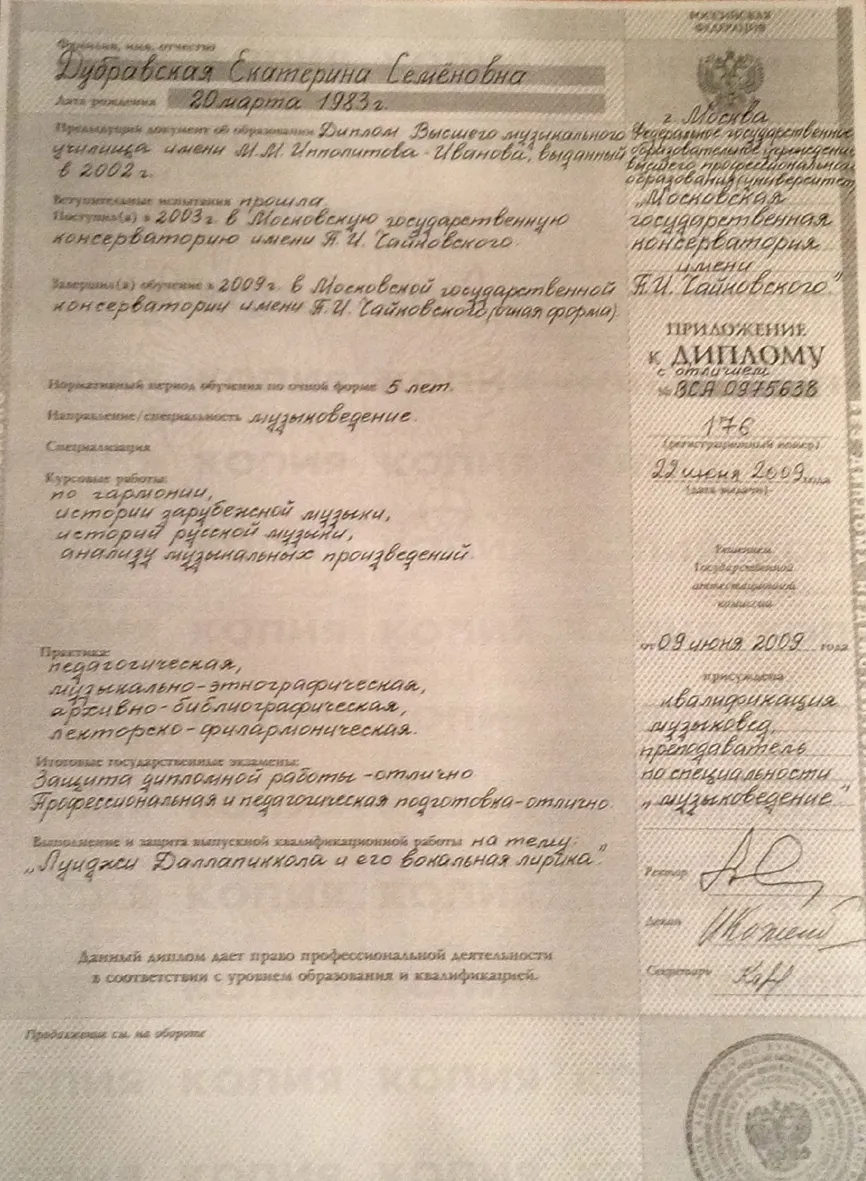 Фамилия, имя, отчество
Дубравская Екатерина Семёновна
Дата рождения 20 марта 1983 г.
Предыдущий документ об образовании Диплом Высшего музыкального
училища имени М.М. Ипполитова-Иванова, выданный
в 2002 г.
Вступительные испытания прошла
Поступил(а) в 2003 г. в Московскую государственную
консерваторию имени П.И. Чайковского.
Завершил(а) обучение в 2009 г. в Московской государственной
консерватории имени П.И. Чайковского (очная форма)
Нормативный период обучения по очной форме 5 лет.
Направление/специальность музыковедение.
Специализация
Курсовые работы:
по гармонии,
истории зарубежной музыки,
истории русской музыки,
анализу музыкальных произведений.
Практика:
педагогическая,
музыкально-этнографическая,
архивно-библиографическая,
лекторско-филармоническая.
Итоговые государственные экзамены:
Защита дипломной работы - отлично
Профессиональная и педагогическая подготовка - отлично.
Выполнение и защита выпускной квалификационной работы на тему:
„Луиджи Даллапиккола и его вокальная лирика."
Данный диплом дает право профессиональной деятельности
в соответствии с уровнем образования и квалификацией.
Продолжение см. на обороте
РОССИЙСКАЯ
ФЕДЕРАЦИЯ
г. Москва
Федеральное государственное
образовательное учреждение
высшего профессионального
образования (университет)
„Московская
государственная
консерватория
имени
П.И. Чайковского."
ПРИЛОЖЕНИЕ
к ДИПЛОМУ
с отличием
№ ВСА 0975638
176
(регистрационный номер)
22 июня 2009 года
(дата выдачи)
Решением
Государственной
аттестационной
комиссии
от 09 июня 2009 года
присуждена
квалификация
музыковед,
преподаватель
по специальности
„музыковедение"
Ректор
Декан
Секретарь
КОПИЯ КОПИЯ